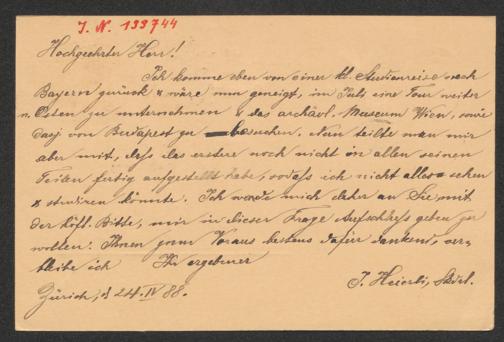 I. N. 133744
Hochgeehrter Herr!
Ich komme eben von einer kl. Studienreise nach
Bayern zurück & wäre nun geneigt, im Juli eine Tour weiter
n. Osten zu unternehmen & das archäol. Museum Wien, sowie
dasj von Budapest zu besuchen. Nun teilte man mir
aber mit, dass das erstere noch nicht in allen seinen
Teilen fertig aufgestellt habe, sodass ich nicht alles sehen
& studiren könnte. Ich wende mich daher an Sie mit
der höfl. Bitte, mir in dieser Frage Aufschluss geben zu
wollen. Ihnen zum Voraus bestens dafür dankend, ver-
bleibe ich Ihr ergebener
J. Heierli,
Zürich, d 24. IV 88.